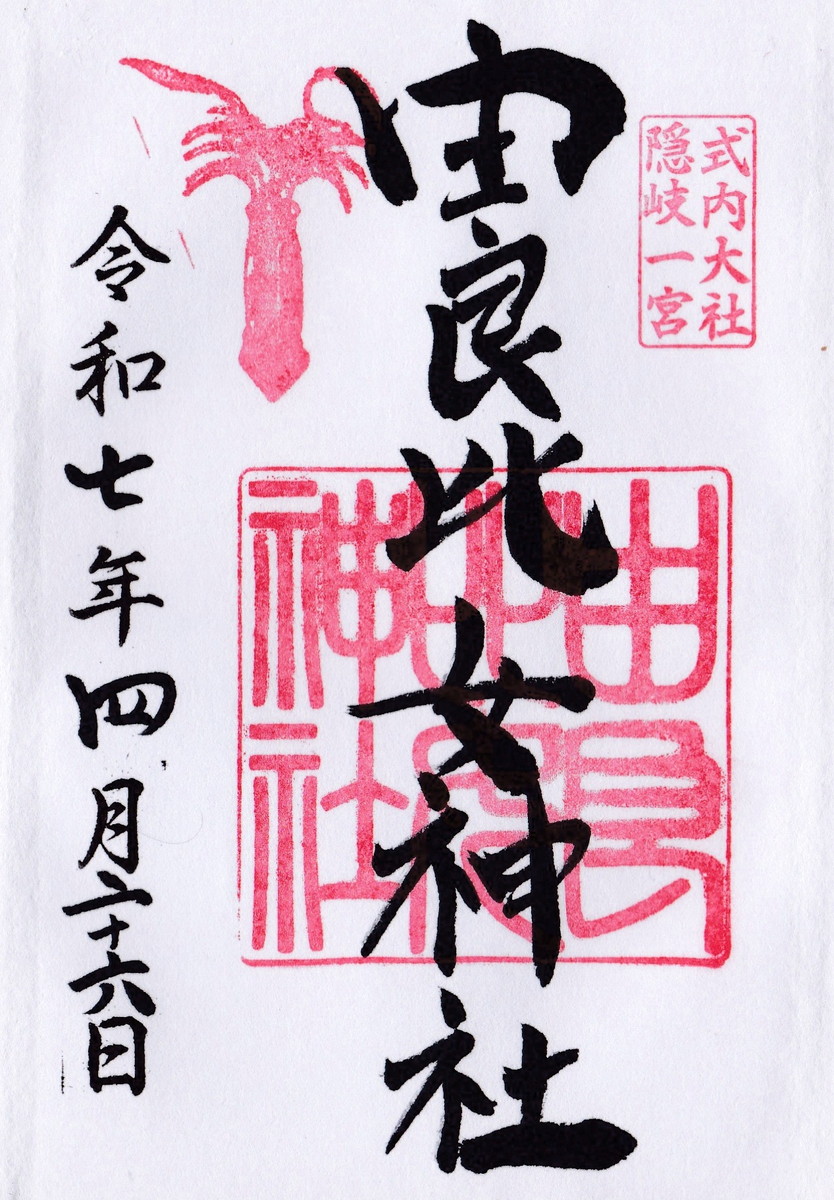 式内大社
隠岐一宮
由良比女神社
由良
比女
神社
令和七年四月二十六日